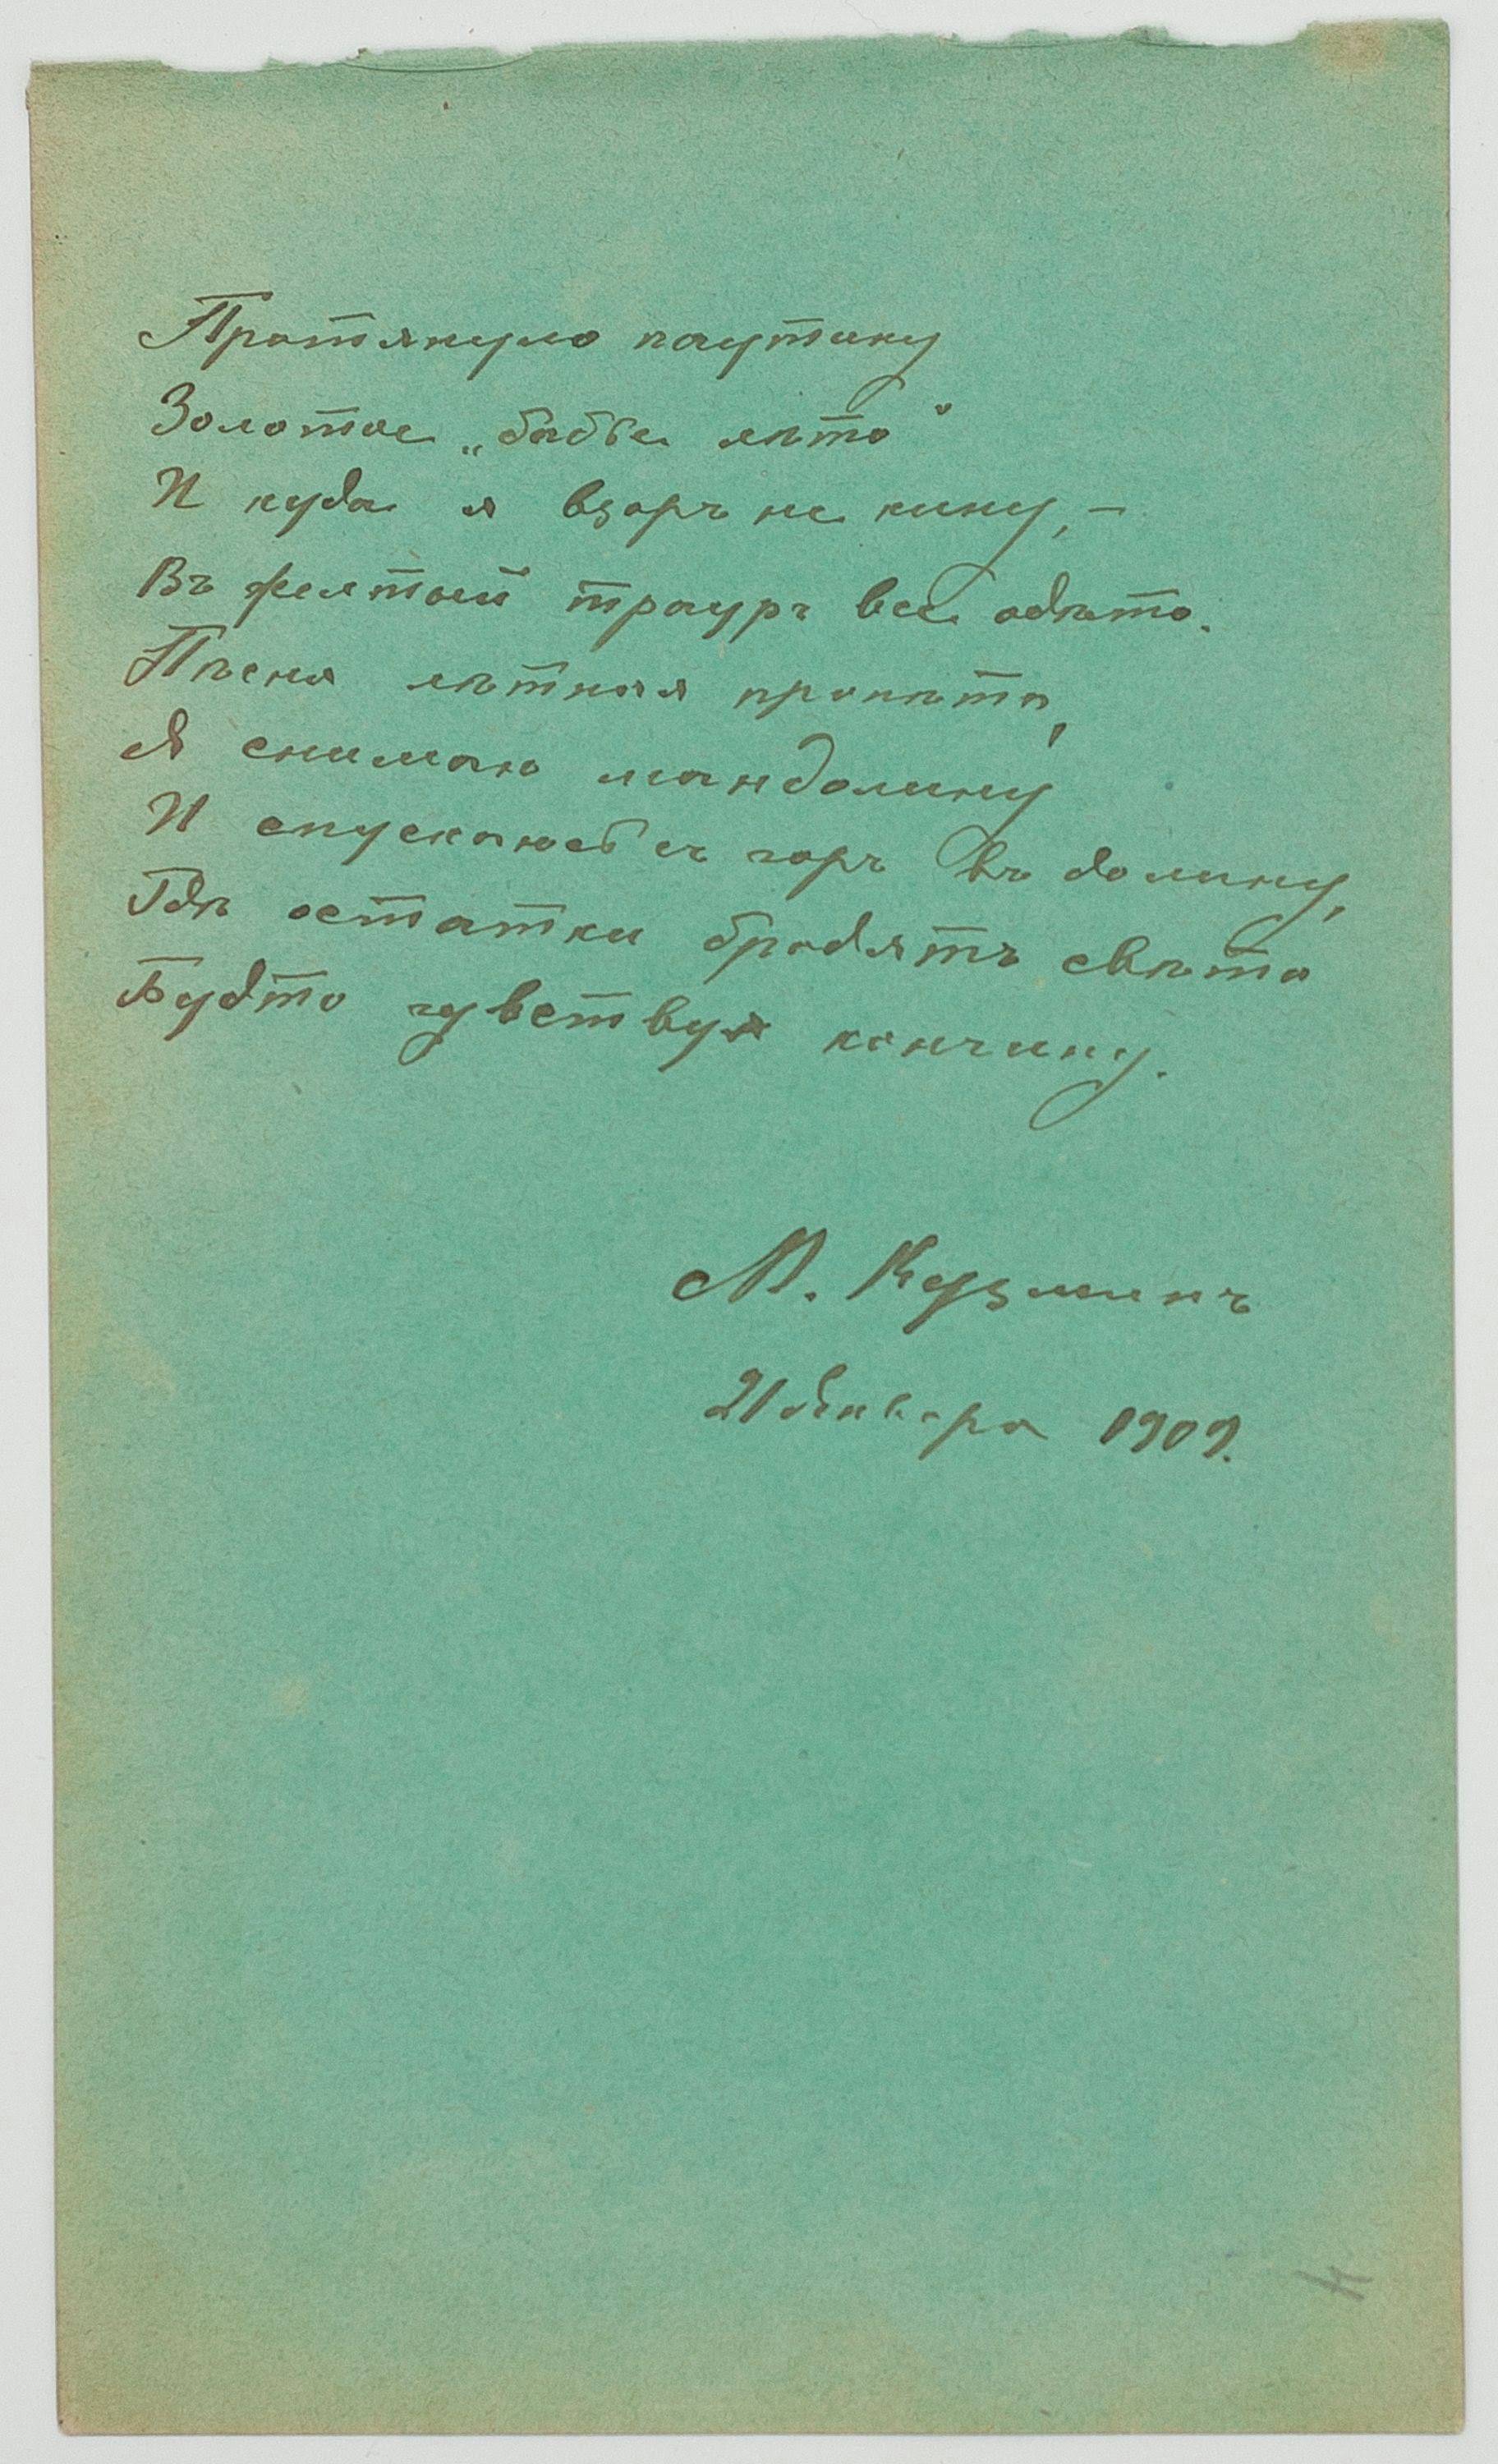 Протянуло паутину
Золотое „бабье лѣто“
И куда я взоръ не кину, –
Въ желтый трауръ все одѣто.
Пѣсня лѣтняя пропѣта,
Я снимаю мандолину
И спускаюсь съ горъ въ долину,
Гдѣ остатки бродятъ свѣта
Будто чувствуя кончину.
М. Кузминъ
21 Января 1909.
4